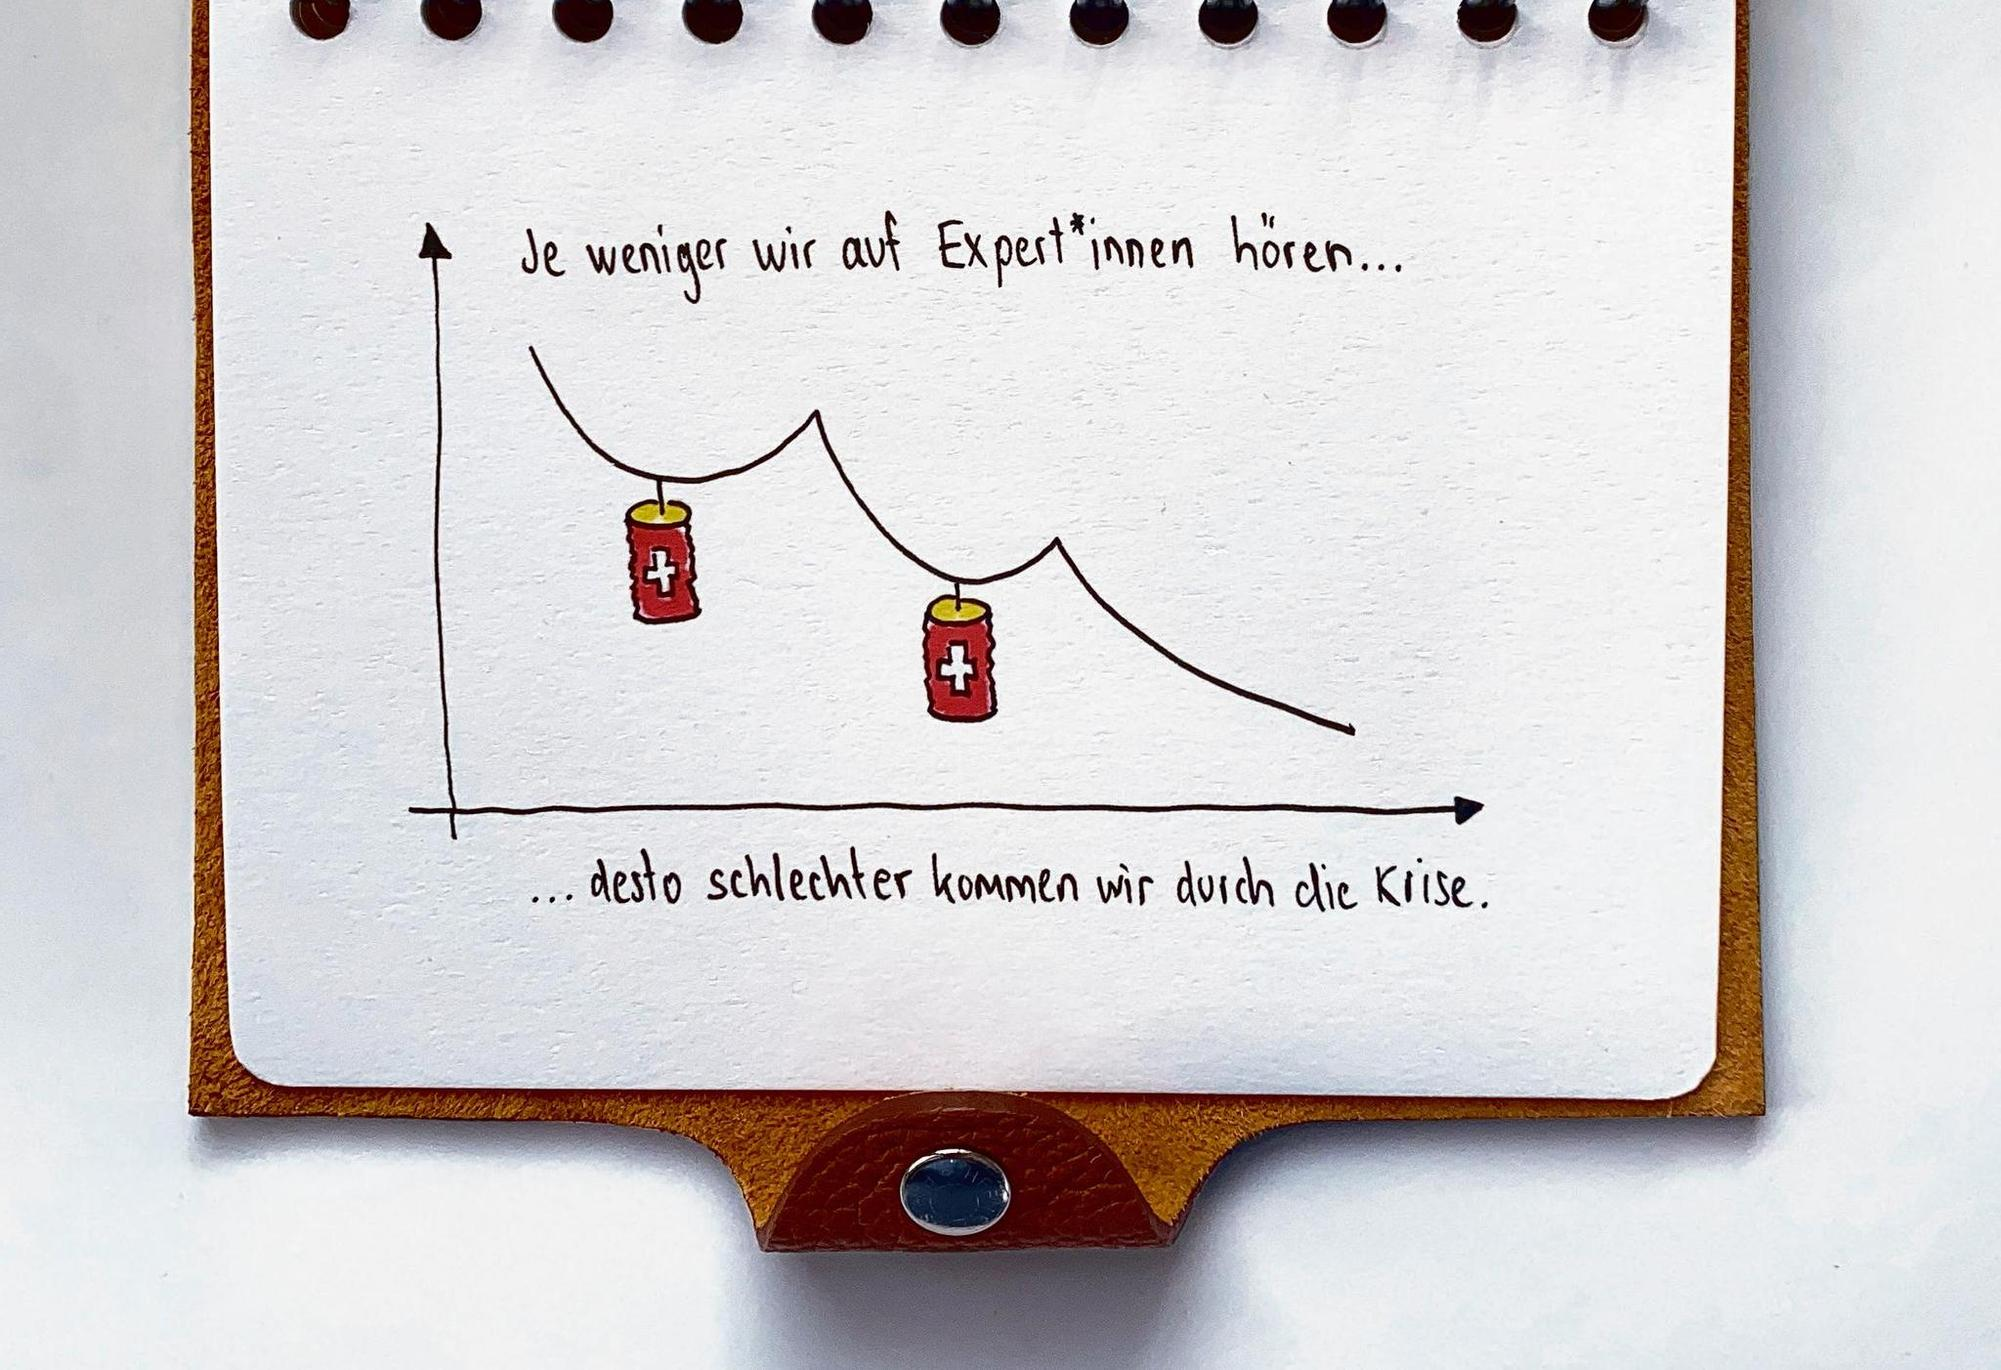 Je weniger wir auf Expert*innen hören...
... desto schlechter kommen wir durch die Krise.